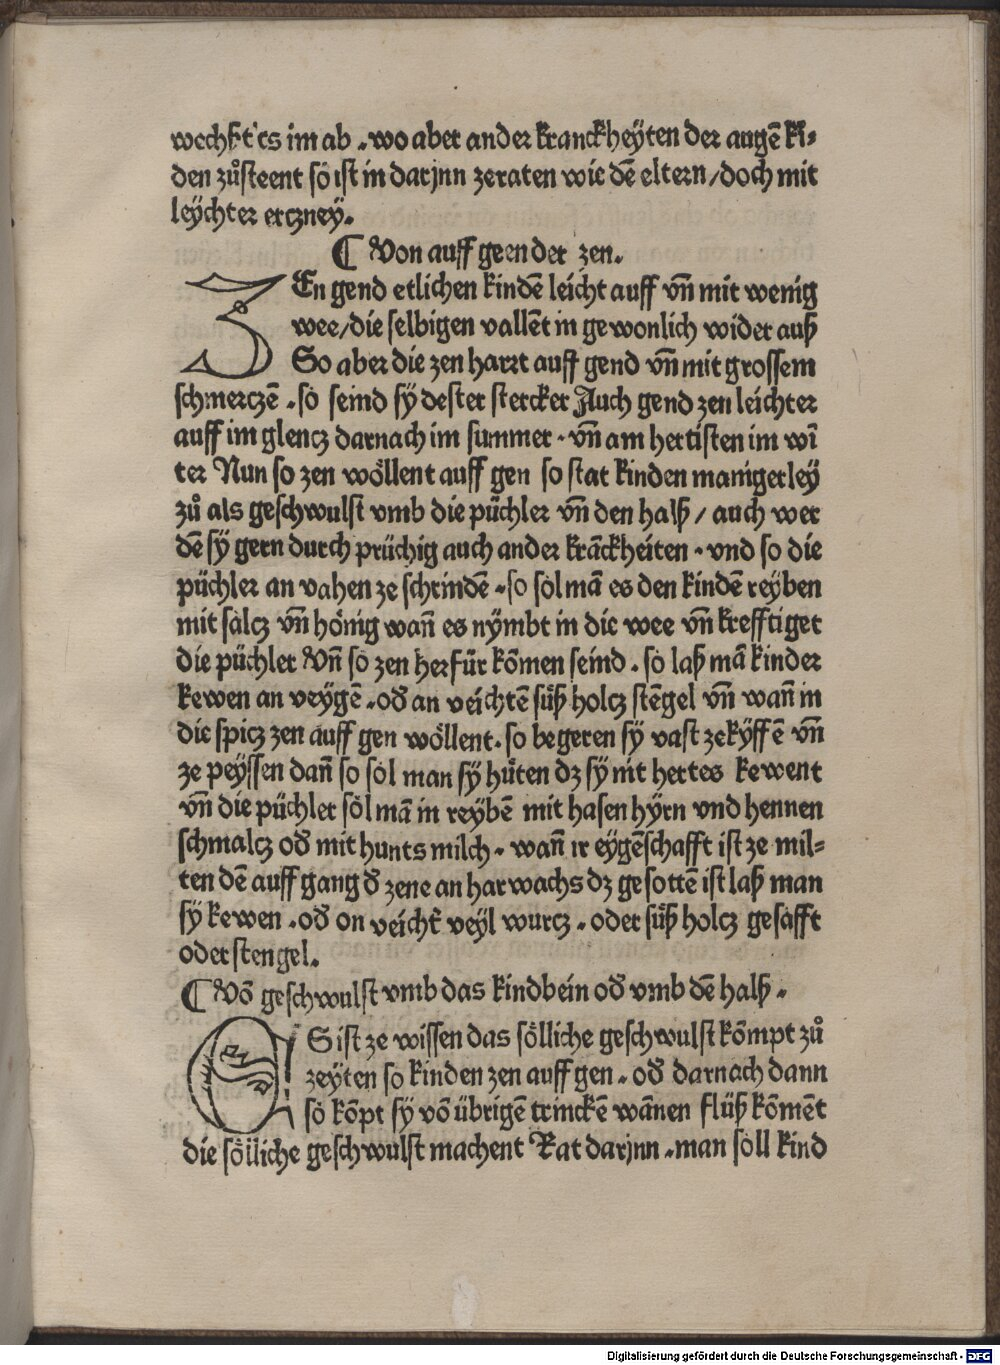 wechßt es im ab . wo aber ander kranckheÿten der augē ki-
den zůsteent so ist in darjnn zeraten wie dē eltern / doch mit
leÿchter erczneÿ.
¶ Von auff geen der zen.
ZEn gend etlichen kindē leicht auff vn̄ mit wenig
wee / die selbigen vallēt in gewonlich wider auß
So aber die zen harrt auff gend vn̄ mit grossem
schmerczē . so seind sÿ dester stercker Auch gend zen leichter
auff im glencz darnach im summer . vn̄ am hertisten im wī
ter Nun so zen wöllent auff gen so stat kinden manigerleÿ
zů als geschwulst vmb die püchler vn̄ den halß / auch wer
dē sÿ gern durch prüchig auch ander krāckheiten . vnd so die
püchler an vahen ze schrindē . so sol mā es den kindē reÿben
mit salcz vn̄ hönig wan̄ es nÿmbt in die wee vn̄ krefftiget
die püchler Vn̄ so zen herfür kōmen seind . so laß mā kinder
kewen an veÿgē . oď an veichtē süß holcz stēgel vn̄ wan̄ in
die spicz zen auff gen wöllent . so begeren sÿ vast zekÿffē vn̄
ze peÿssen dan̄ so sol man sÿ hüten dz sÿ nit hertes kewent
vn̄ die püchler sol mā in reÿbē mit hasen hÿrn vnd hennen
schmalcz oď mit hunts milch . wan̄ ir eÿgēschafft ist ze mil-
ten dē auffgang ď zene an har wachs dz gesottē ist laß man
sÿ kewen . oď on veicht̄ veÿl wurcz . oder süß holcz gesafft
oder stengel.
¶ Vō geschwulst vmb das kindbein oď vmb dē halß .
ES ist ze wissen das sölliche geschwulst kōmpt zů
zeÿten so kinden zen auff gen . oď darnach dann
so kōpt sÿ vō übrigē trinckē wānen flüß kōmēt
die sölliche geschwulst machent Rat darjnn . man soll kind
Digitalisierung gefördert durch die Deutsche Forschungsgemeinschaft - DFG